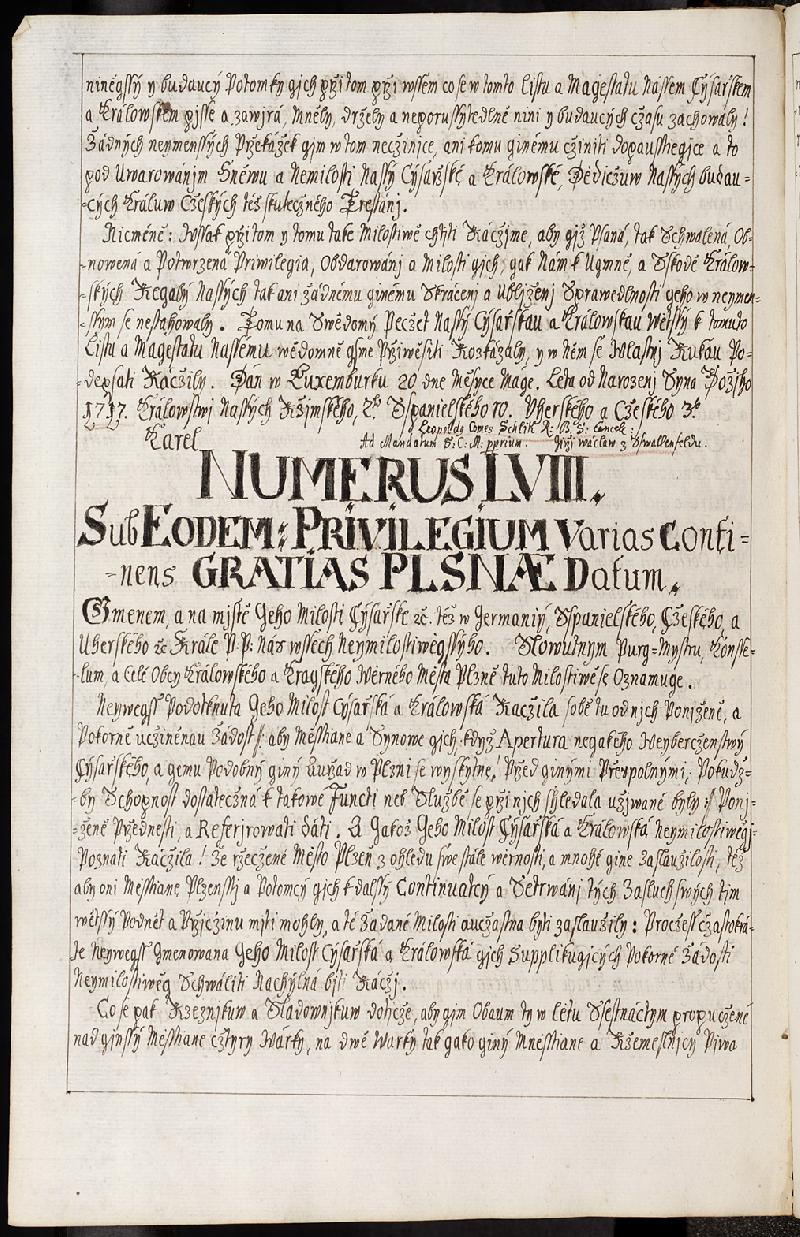 niněgssý y budaucý Potomky gjch přitom při wssem co se w tomto listu a Magestatu Nassem Cýsařskem
a Králowskem pjssě a zawjrá, Mněly, drželj a neporussýtedlně nini y budaucých czasu zachowaly!
Žádných neymenssých Překážek gjm w tom neczinjce, ani komu ginému cžiniti dopausstegjce a to
pod Uwarowánjm Hněwu a Nemilosti Nassý Cýsařské a Králowské, Dědiczuw Nassých budau-
-cých Králuw Czeských též skutecžného Trestánj.
Nicméně: Wssak při tom y tomu take Milostiwě chtjti Ráčžjme, aby gjž Psaná, tak Schwalená, Ob-
-nowená a Potwrzená Priwilegia, Obdarowánj a Milosti gjch, gak Nám k Ugmně, a Sskodě Králow-
-ských Regalý Nassých tak ani žádnému ginému Skrácenj a Ublјženj Sprawedlnosti geho w neymen-
-ssým se nestahowaly. Tomu na Swědomý Peczet Nassý Cýsařskau a Králowskau wětssý k tomuto
Listu a Magestatu Nassěmu wědomně gsme Přiwěsyti Rozkázaly, y w něm se Wlastnj Rukau Po-
-depsati Ráčžily. Dán w Luxemburku 20 dne Měsyce Mage. Leta od Narozenj Syna Božjho
1717. Králowstwj Nassých Ržjmského, 6º Sspanielského 10. Uherského a Czeského 7º
Karel Leopoldq Comes Schlik R: B: S: Cancell:
Ad Mandatum S: C: M: pprium. Jiřj Wáclaw z Schmallenfeldu.
NUMERUS LVIII.
Sub EODEM: PRIVILEGIUM Varias Conti=
-nens GRATIAS PLSNÆ Datum.
Gmenem, a na mjstě Geho Milosti Cýsařske ꝛc. též w Germanij, Sspanielského, Czeského, a
Uherského ꝛc Krále P. P: Nás wssech Neymilostiwěgssýho. Slowutnym Purg=Mystru, Konsse-
-lum, a Celé Obcy Králowského a Kragského Wěrného Města Plzně tuto Milostiwě se Oznamuge.
Neyweyss Podotknuta Geho Milost Cýsařská a Králowská Racžila sobě tu od njch Ponjženě, a
Pokorně ucžiněnau Žádost /: aby Měsstiane a Synowe gjch když Apertura negakého Weyberczenstwý
Cýsařského, a gemu Podobný giný Auřad w Plzni se wyskytne! Před ginými Přespolnými, Pokudž-
-by Schopnost dostatecžná k takowé Functi neb Službě se při njch shledala užjwané byly :/ Ponj-
-ženě Přednesti, a Referjrowati dáti. A Gakož Geho Milost Cýsařská a Králowská Neymilostiwěgj
Poznati Racžila! Že rzecžené Město Plzen z ohledu swé stálé wěrnosti, a mnohé gine zaslaužilosti, též
aby oni Měsstiane Plzensstj a Potomcý gjch k dalssý Continuatcý a Setrwánj tých Zasluch swých tim
wětssý Podnět a Přjcžinu mjti mohly, a té Žádané Milosti aucžastna býti zaslaužily: Procžež cžastokrá-
-te Neyweyss Gmenowana Geho Milost Cýsařská a Králowská gjch Supplikugjcých Pokorné Žádosti
Neymilostiwěg Schwáliti Nachýlná býti Racžj.
Co se pak Ržeznjkuw a Sladownjkuw dotýcže, aby gjm Obaum ty w létu Ssestnáctým propucžené
nad ginssý Měsstiane cžtyry Wárky, na dwě Warky tak gako giný Mnesstiane a Ržemeslnjcy Piwa